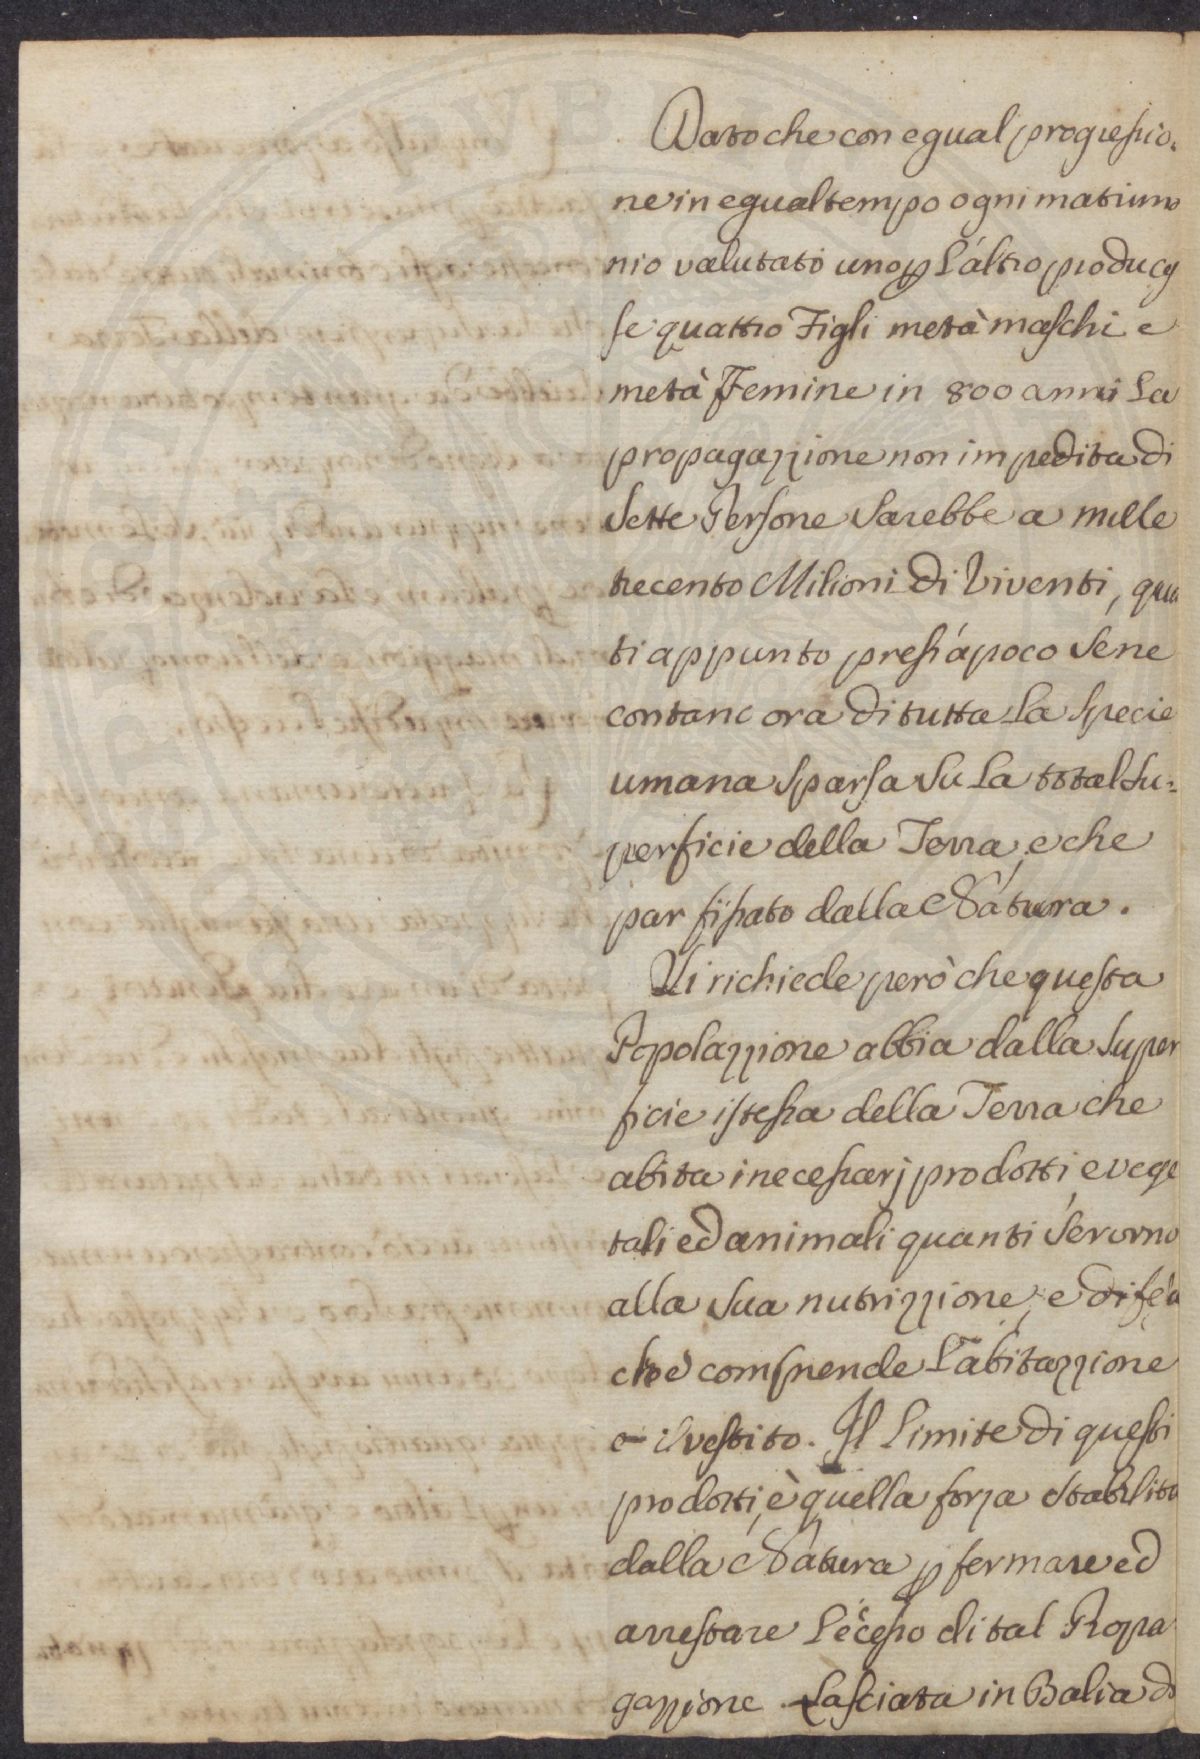 Dato che con egual progressio-
ne in egual tempo ogni matrimo
nio valutato uno p L'altro produces
se quattro Figli metà maschi e
metà Femine in 800 anni La
propagazzione non impedita di
Sette Persone Sarebbe a mille
trecento Milioni di Viventi, quan
ti appunto press'á poco Se ne
contano ora di tutta La Specie
umana Sparsa Su La total Su=
perficie della Terra, e che
par fissato dalla Natura.
Si richiede però che questa
Popolazzione abbia dalla Super
ficie istessa della Terra che
abita i necessarj prodotti, e vege
tali ed animali quanti Servono
alla Sua nutrizzione, e difesa
che comprende L'abitazzione
e il vestito. Il Limite di questi
prodotti, è quella forza Stabilita
dalla Natura p fermare ed
arrestare L'ecesso di tal Propa
gazzione. Lasciata in Balia di